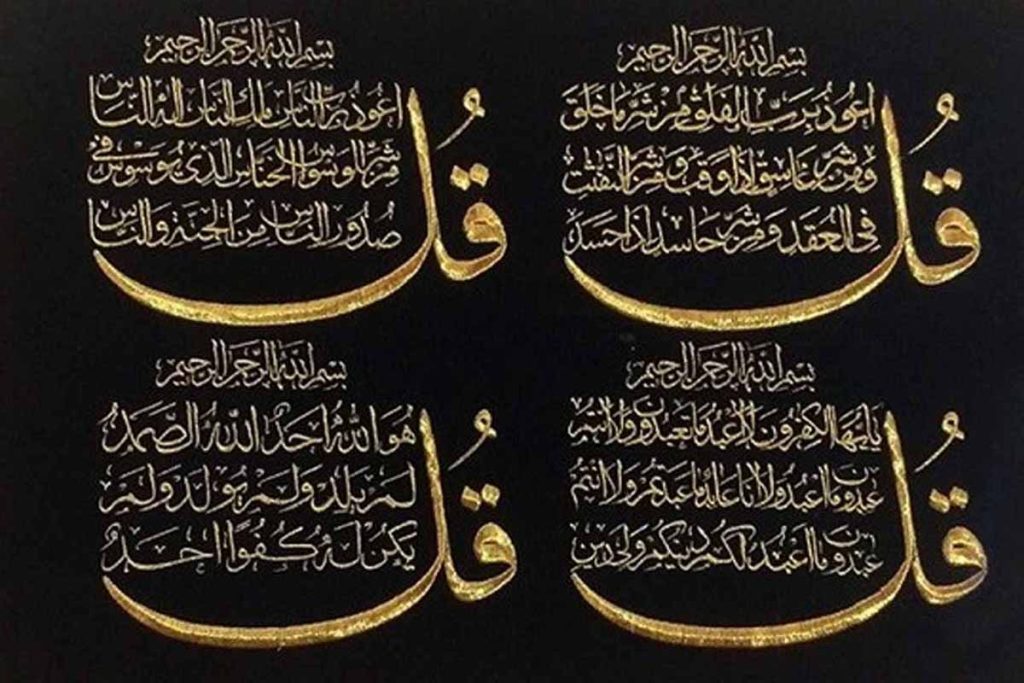 بِسْمِ اللهِ الرَّحْمٰنِ الرَّحِيْمِ
قُل اعوذ برب الفلق من شر ما خلق
ومن شر غاسق اذا وقب ومن شر النفثت
فى العقد ومن شر حاسد اذا حسد
بِسْمِ اللهِ الرَّحْمٰنِ الرَّحِيْمِ
قُل اعوذ برب الناس ملك الناس اله الناس
من شر الوسواس الخناس الذى يوسوس فى
صدور الناس من الجنة والناس
بِسْمِ اللهِ الرَّحْمٰنِ الرَّحِيْمِ
قُل يايها الكفرون لا اعبد ما تعبدون ولا انتم
عبدون ما اعبد ولا انا عابد ما عبدتم ولا انتم
عبدون ما اعبد لكم دينكم ولى دين
بِسْمِ اللهِ الرَّحْمٰنِ الرَّحِيْمِ
قُل هو الله احد الله الصمد
لم يلد ولم يولد ولم
يكن له كفوا احد